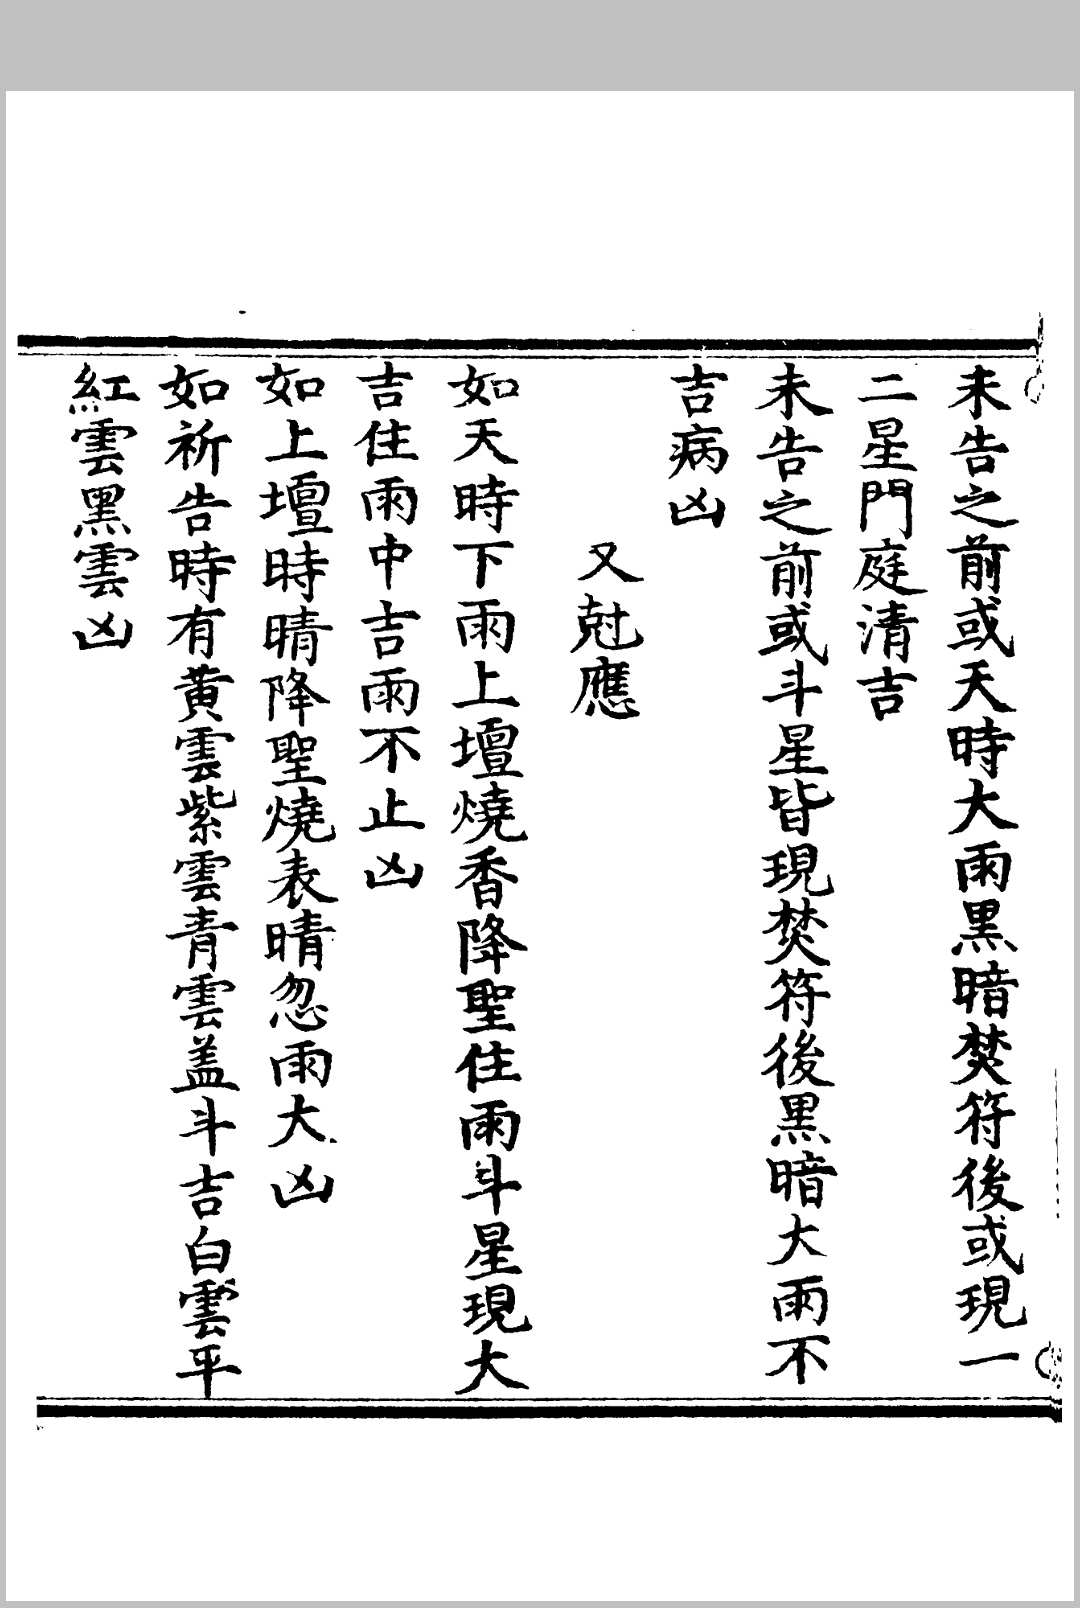 未告之前或天時大雨黒暗焚符後或現一
二星門庭清吉
未告之前或斗星皆現焚符後黒暗大雨不
吉病凶
又尅應
如天時下雨上壇燒香降聖住雨斗星現大
吉住雨中吉雨不止凶
如上壇時晴降聖燒表晴忽雨大凶
如祈告時有黄雲紫雲青雲盖斗吉白雲平
紅雲黑雲凶